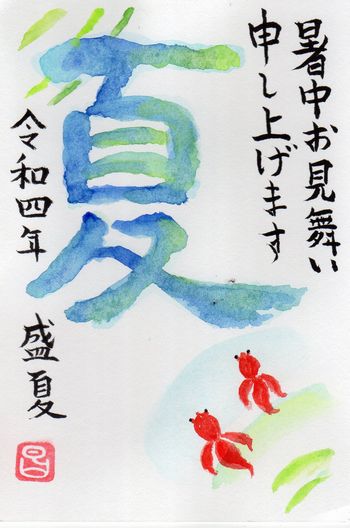 暑中お見舞い
申し上げます
夏
令和四年
盛夏